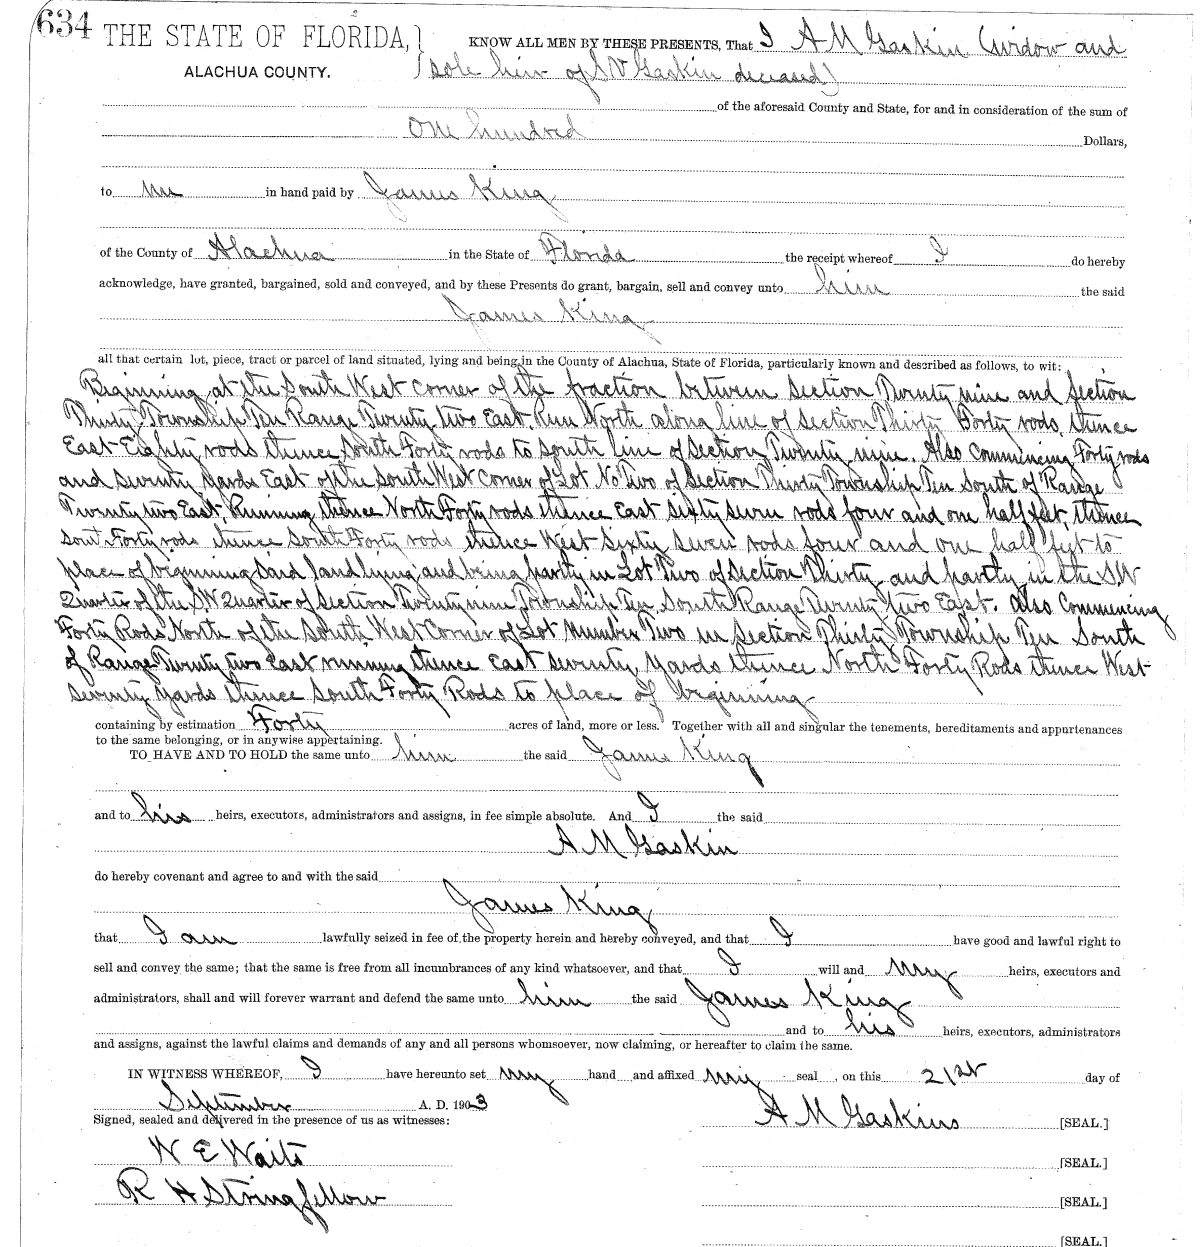 634
THE STATE OF FLORIDA, } KNOW ALL MEN BY THESE PRESENTS, That I A M Gaskin (widow and
ALACHUA COUNTY. sole heir of S W Gaskin deceased)
of the aforesaid County and State, for and in consideration of the sum of
One hundred Dollars,
to me in hand paid by James King
of the County of Alachua in the State of Florida the receipt whereof I do hereby
acknowledge, have granted, bargained, sold and conveyed, and by these Presents do grant, bargain, sell and convey unto him the said
James King
all that certain lot, piece, tract or parcel of land situated, lying and being in the County of Alachua, State of Florida, particularly known and described as follows, to wit:
Beginning at the South West Corner of the fraction between Section Twenty nine and Section
Thirty Township Ten Range Twenty two East. Run North along line of Section Thirty Forty rods, thence
East Eighty rods thence South Forty rods to South line of Section Twenty nine. Also Commencing Forty rods
and Seventy Yards East of the South West Corner of Lot No Two of Section Thirty Township Ten South of Range
Twenty two East, Running thence North Forty rods thence East Sixty Seven rods four and one half feet, thence
Sout Forty rods thence South Forty rods thence West Sixty Seven rods four and one half feet to
place of beginning Said land lying and being partly in Lot Two of Section Thirty and partly in the SW
Quarter of the SW Quarter of Section Twenty nine Township Ten, South Range Twenty two East. Also Commencing
Forty Rods North of the South West Corner of Lot Number Two in Section Thirty Township Ten South
of Range Twenty two East running thence East Seventy, Yards thence North Forty Rods thence West
Seventy Yards thence South Forty Rods to place of beginning
containing by estimation Forty acres of land, more or less. Together with all and singular the tenements, hereditaments and appurtenances
to the same belonging, or in anywise appertaining.
TO HAVE AND TO HOLD the same unto him the said James King
and to his heirs, executors, administrators and assigns, in fee simple absolute. And I the said
A M Gaskin
do hereby covenant and agree to and with the said
James King
that I am lawfully seized in fee of the property herein and hereby conveyed, and that I have good and lawful right to
sell and convey the same; that the same is free from all incumbrances of any kind whatsoever, and that I will and my heirs, executors and
administrators, shall and will forever warrant and defend the same unto him the said James King
and to his heirs, executors, administrators
and assigns, against the lawful claims and demands of any and all persons whomsoever, now claiming, or hereafter to claim the same.
IN WITNESS WHEREOF, I have hereunto set my hand and affixed my seal , on this 21st day of
September A. D. 1903
Signed, sealed and delivered in the presence of us as witnesses: A M Gaskins [SEAL.]
W E Waits [SEAL.]
R H Stringfellow [SEAL.]
[SEAL.]